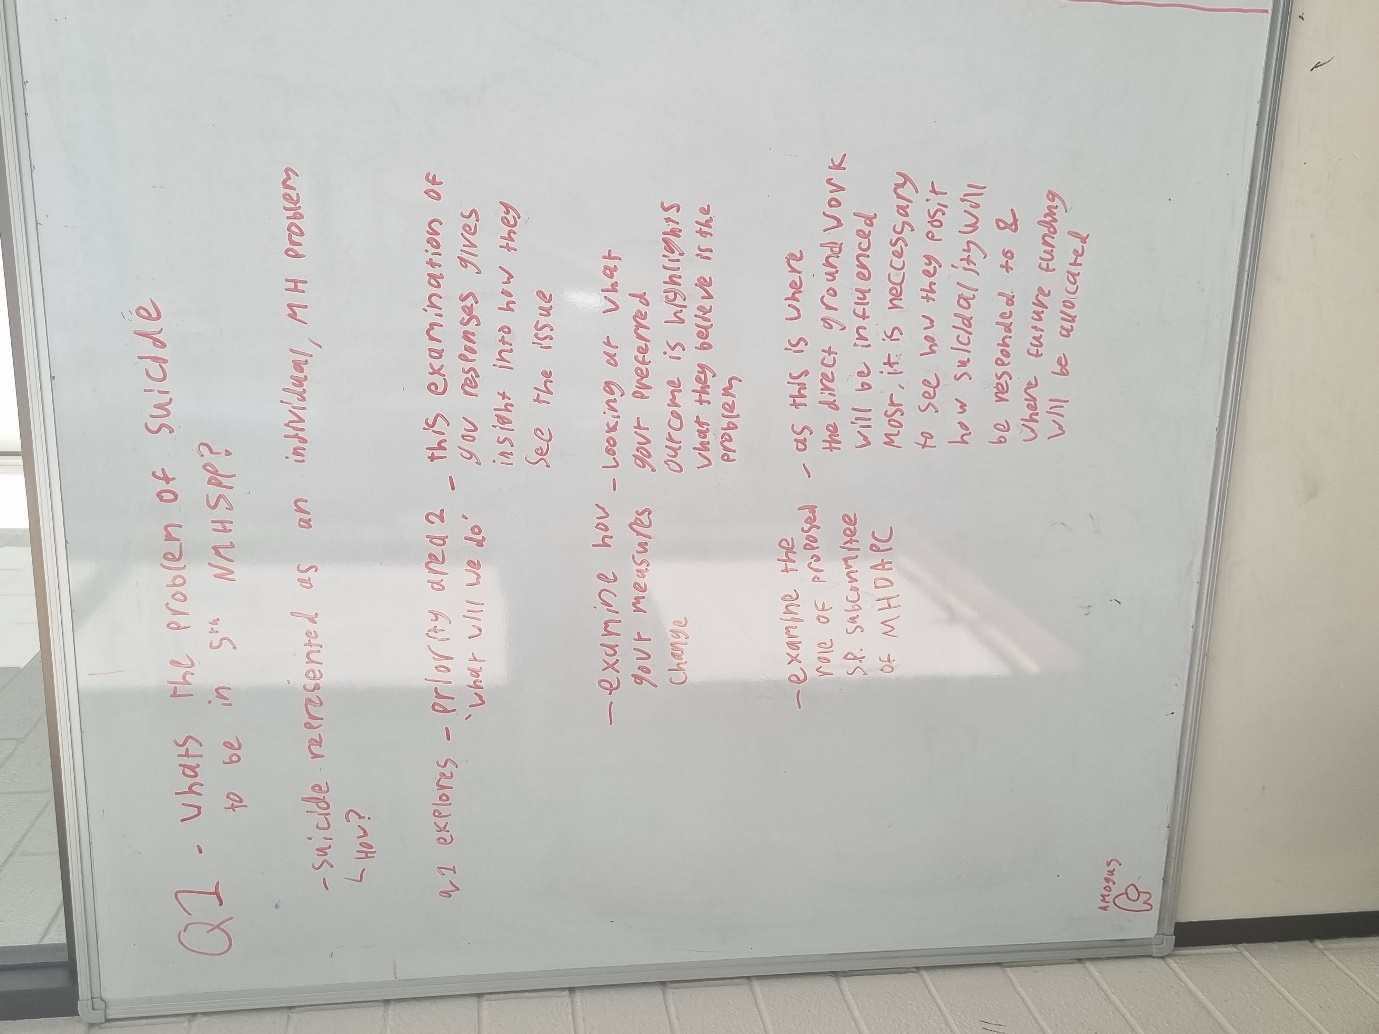 Q1 - whats the problem of suicide
to be in 5th NMHSPP?
- suicide represented as an individual, MH problem
↳ How?
q1 explores - priority area 2 - this examination of
'what will we do' gov responses gives
insight into how they
see the issue
- examine how - Looking at what
govt measures govt preferred
change outcome is highlights
what they believe is the
problem
- examine the - as this is where
role of proposed the direct ground work
S.P. subcommittee will be influenced
of MHDAPC most, it is neccessary
to see how they posit
how suicidality will
be responded to &
where future funding
will be allocated
AMOGUS